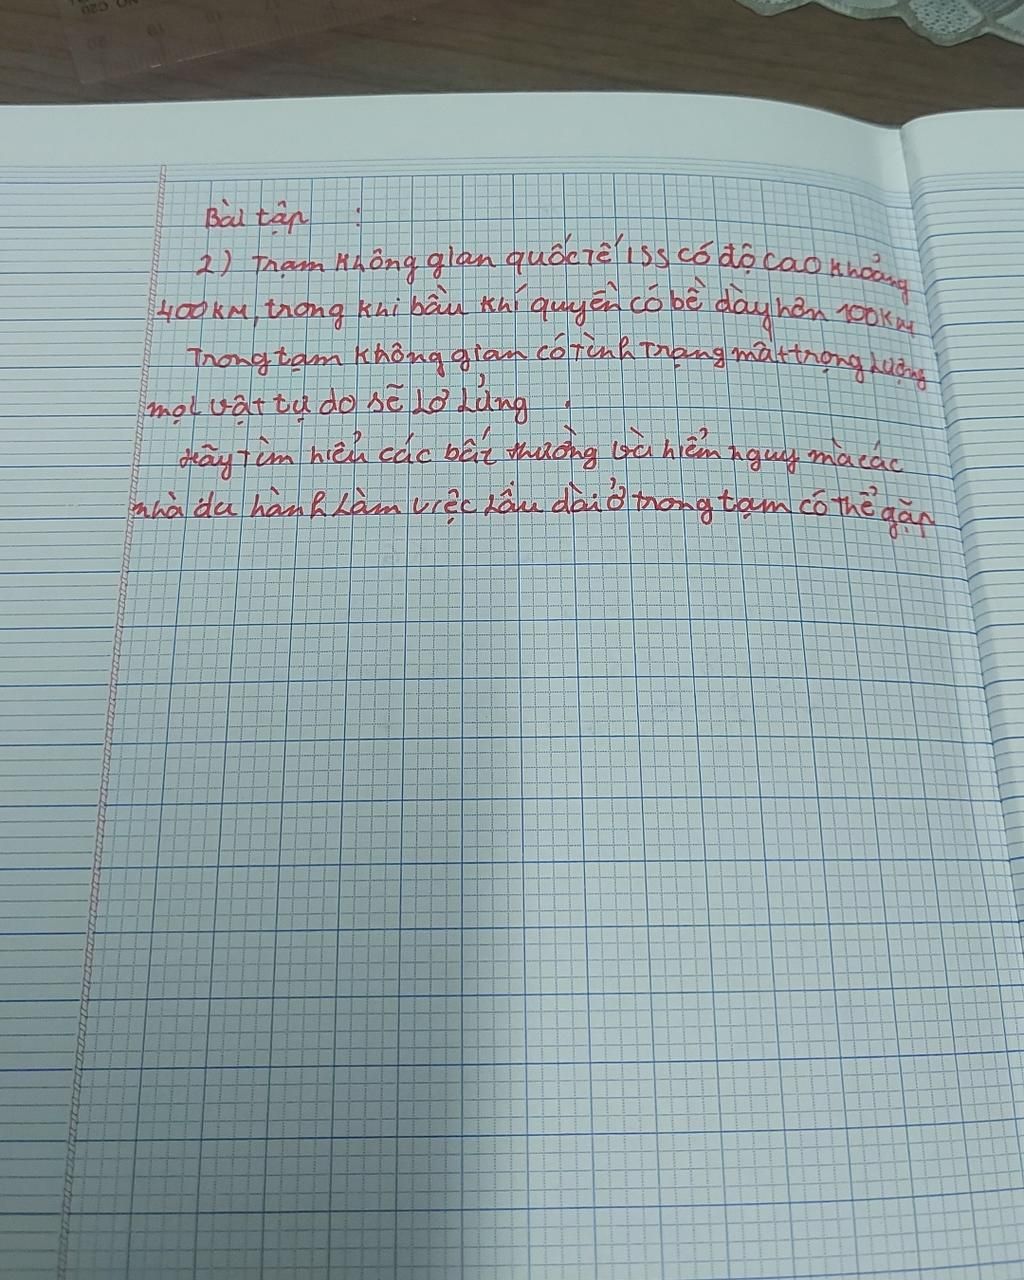 Bài tập :
2) Trạm không gian quốc tế ISS có độ cao khoảng
400KM, trong khi bầu khí quyền có bề dày hơn 100KM
Trong tạm không gian có tình trạng mất trọng lượng
mọi vật tự do sẽ lơ lửng.
Hãy tìm hiểu các bất thường và hiểm nguy mà các
nhà du hành làm việc lâu dài ở trong tạm có thể gặp